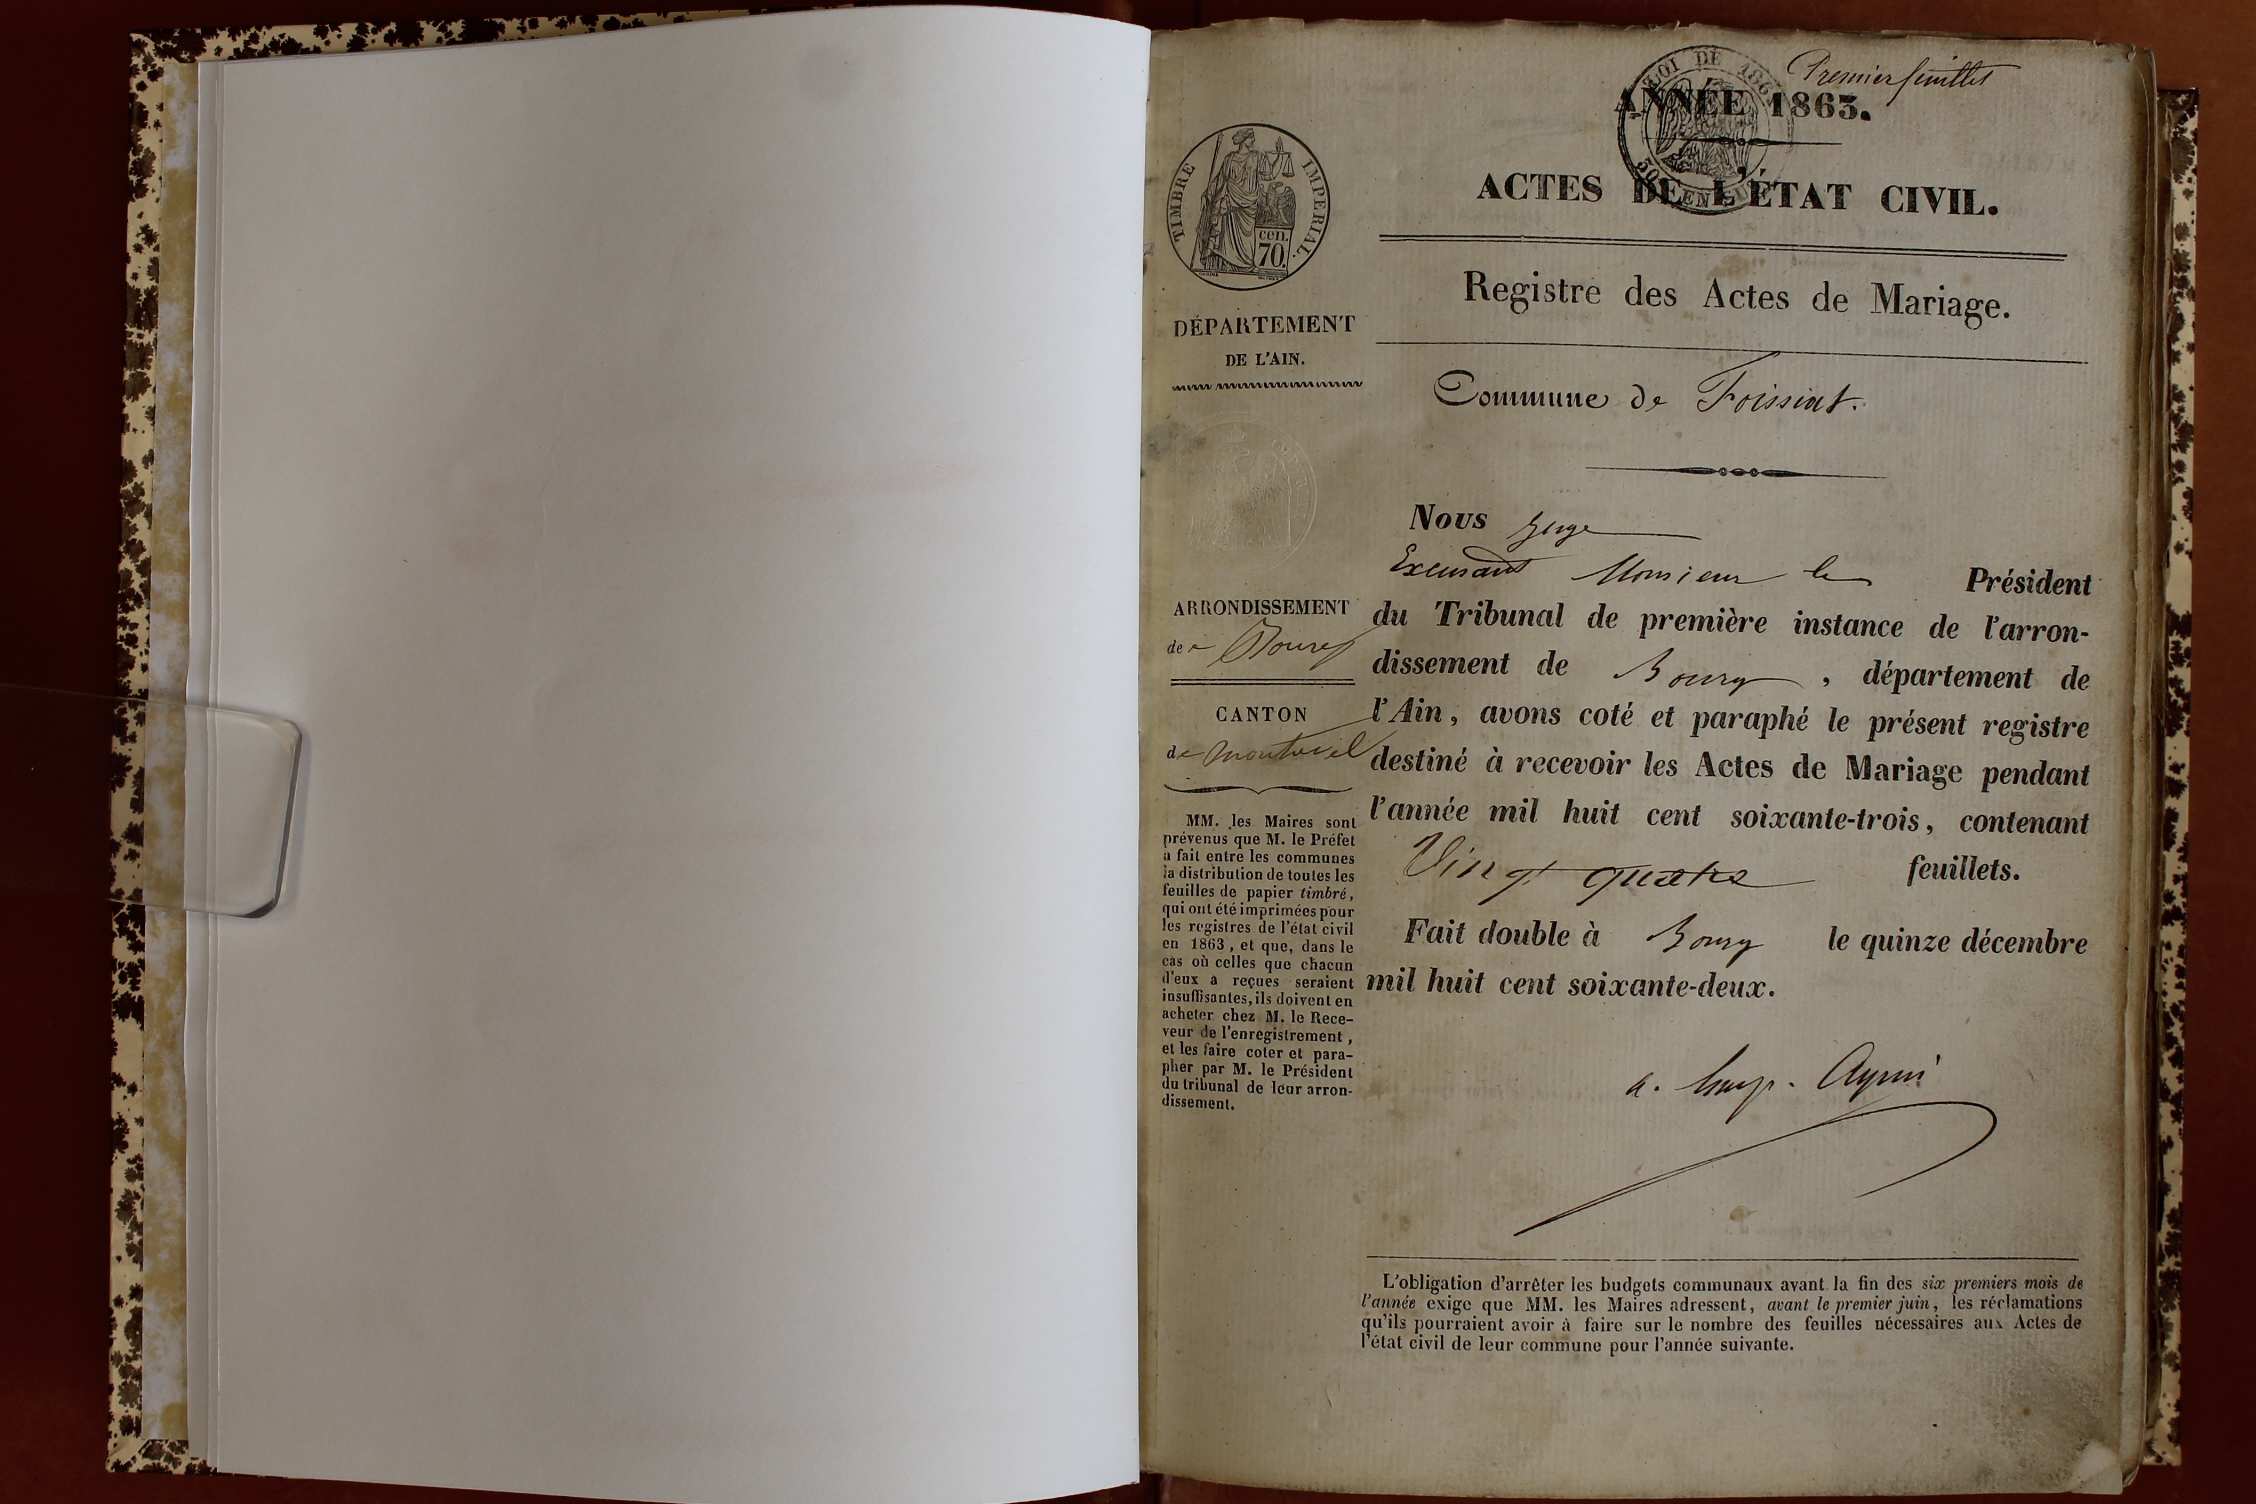 Premier feuillet
LOI DE 1862
ANNÉE 1863.
50 EN SUS
ACTES DE L'ÉTAT CIVIL.
Registre des Actes de Mariage.
Commune de Foissiat.
TIMBRE IMPERIAL.
cen.
70.
DÉPARTEMENT
DE L'AIN.
ARRONDISSEMENT
de Bourg
CANTON
de montrevel
MM. les Maires sont
prévenus que M. le Préfet
a fait entre les communes
la distribution de toutes les
feuilles de papier timbré,
qui ont été imprimées pour
les registres de l'état civil
en 1863, et que, dans le
cas où celles que chacun
d'eux a reçues seraient
insuffisantes, ils doivent en
acheter chez M. le Rece-
veur de l'enregistrement,
et les faire coter et para-
pher par M. le Président
du tribunal de leur arron-
dissement.
Nous Juge
Excusant Monsieur le Président
du Tribunal de première instance de l'arron-
dissement de Bourg, département de
l'Ain, avons coté et paraphé le présent registre
destiné à recevoir les Actes de Mariage pendant
l'année mil huit cent soixante-trois, contenant
Vingt quatre feuillets.
Fait double à Bourg le quinze décembre
mil huit cent soixante-deux.
L'obligation d'arrêter les budgets communaux avant la fin des six premiers mois de
l'année exige que MM. les Maires adressent, avant le premier juin, les réclamations
qu'ils pourraient avoir à faire sur le nombre des feuilles nécessaires aux Actes de
l'état civil de leur commune pour l'année suivante.